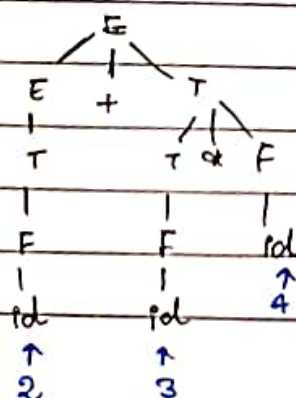 E
E + T
T T * F
F F id
id id 4
2 3